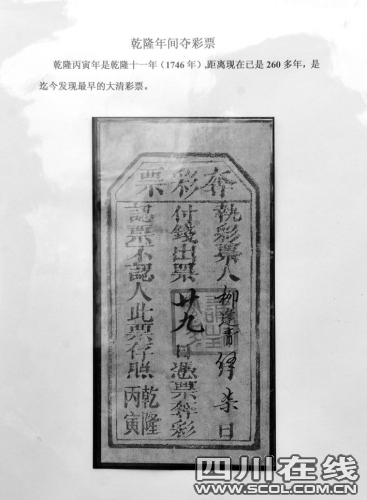 乾隆年间夺彩票
乾隆丙寅年是乾隆十一年（1746年）,距离现在已是260多年，是
迄今发现最早的大清彩票。
夺彩票
執彩票人柳柒日
付錢出票廿九日憑票夺彩
認票不認人此票存照
乾隆
丙寅
四川在线
WWW.SCOL.COM.CN